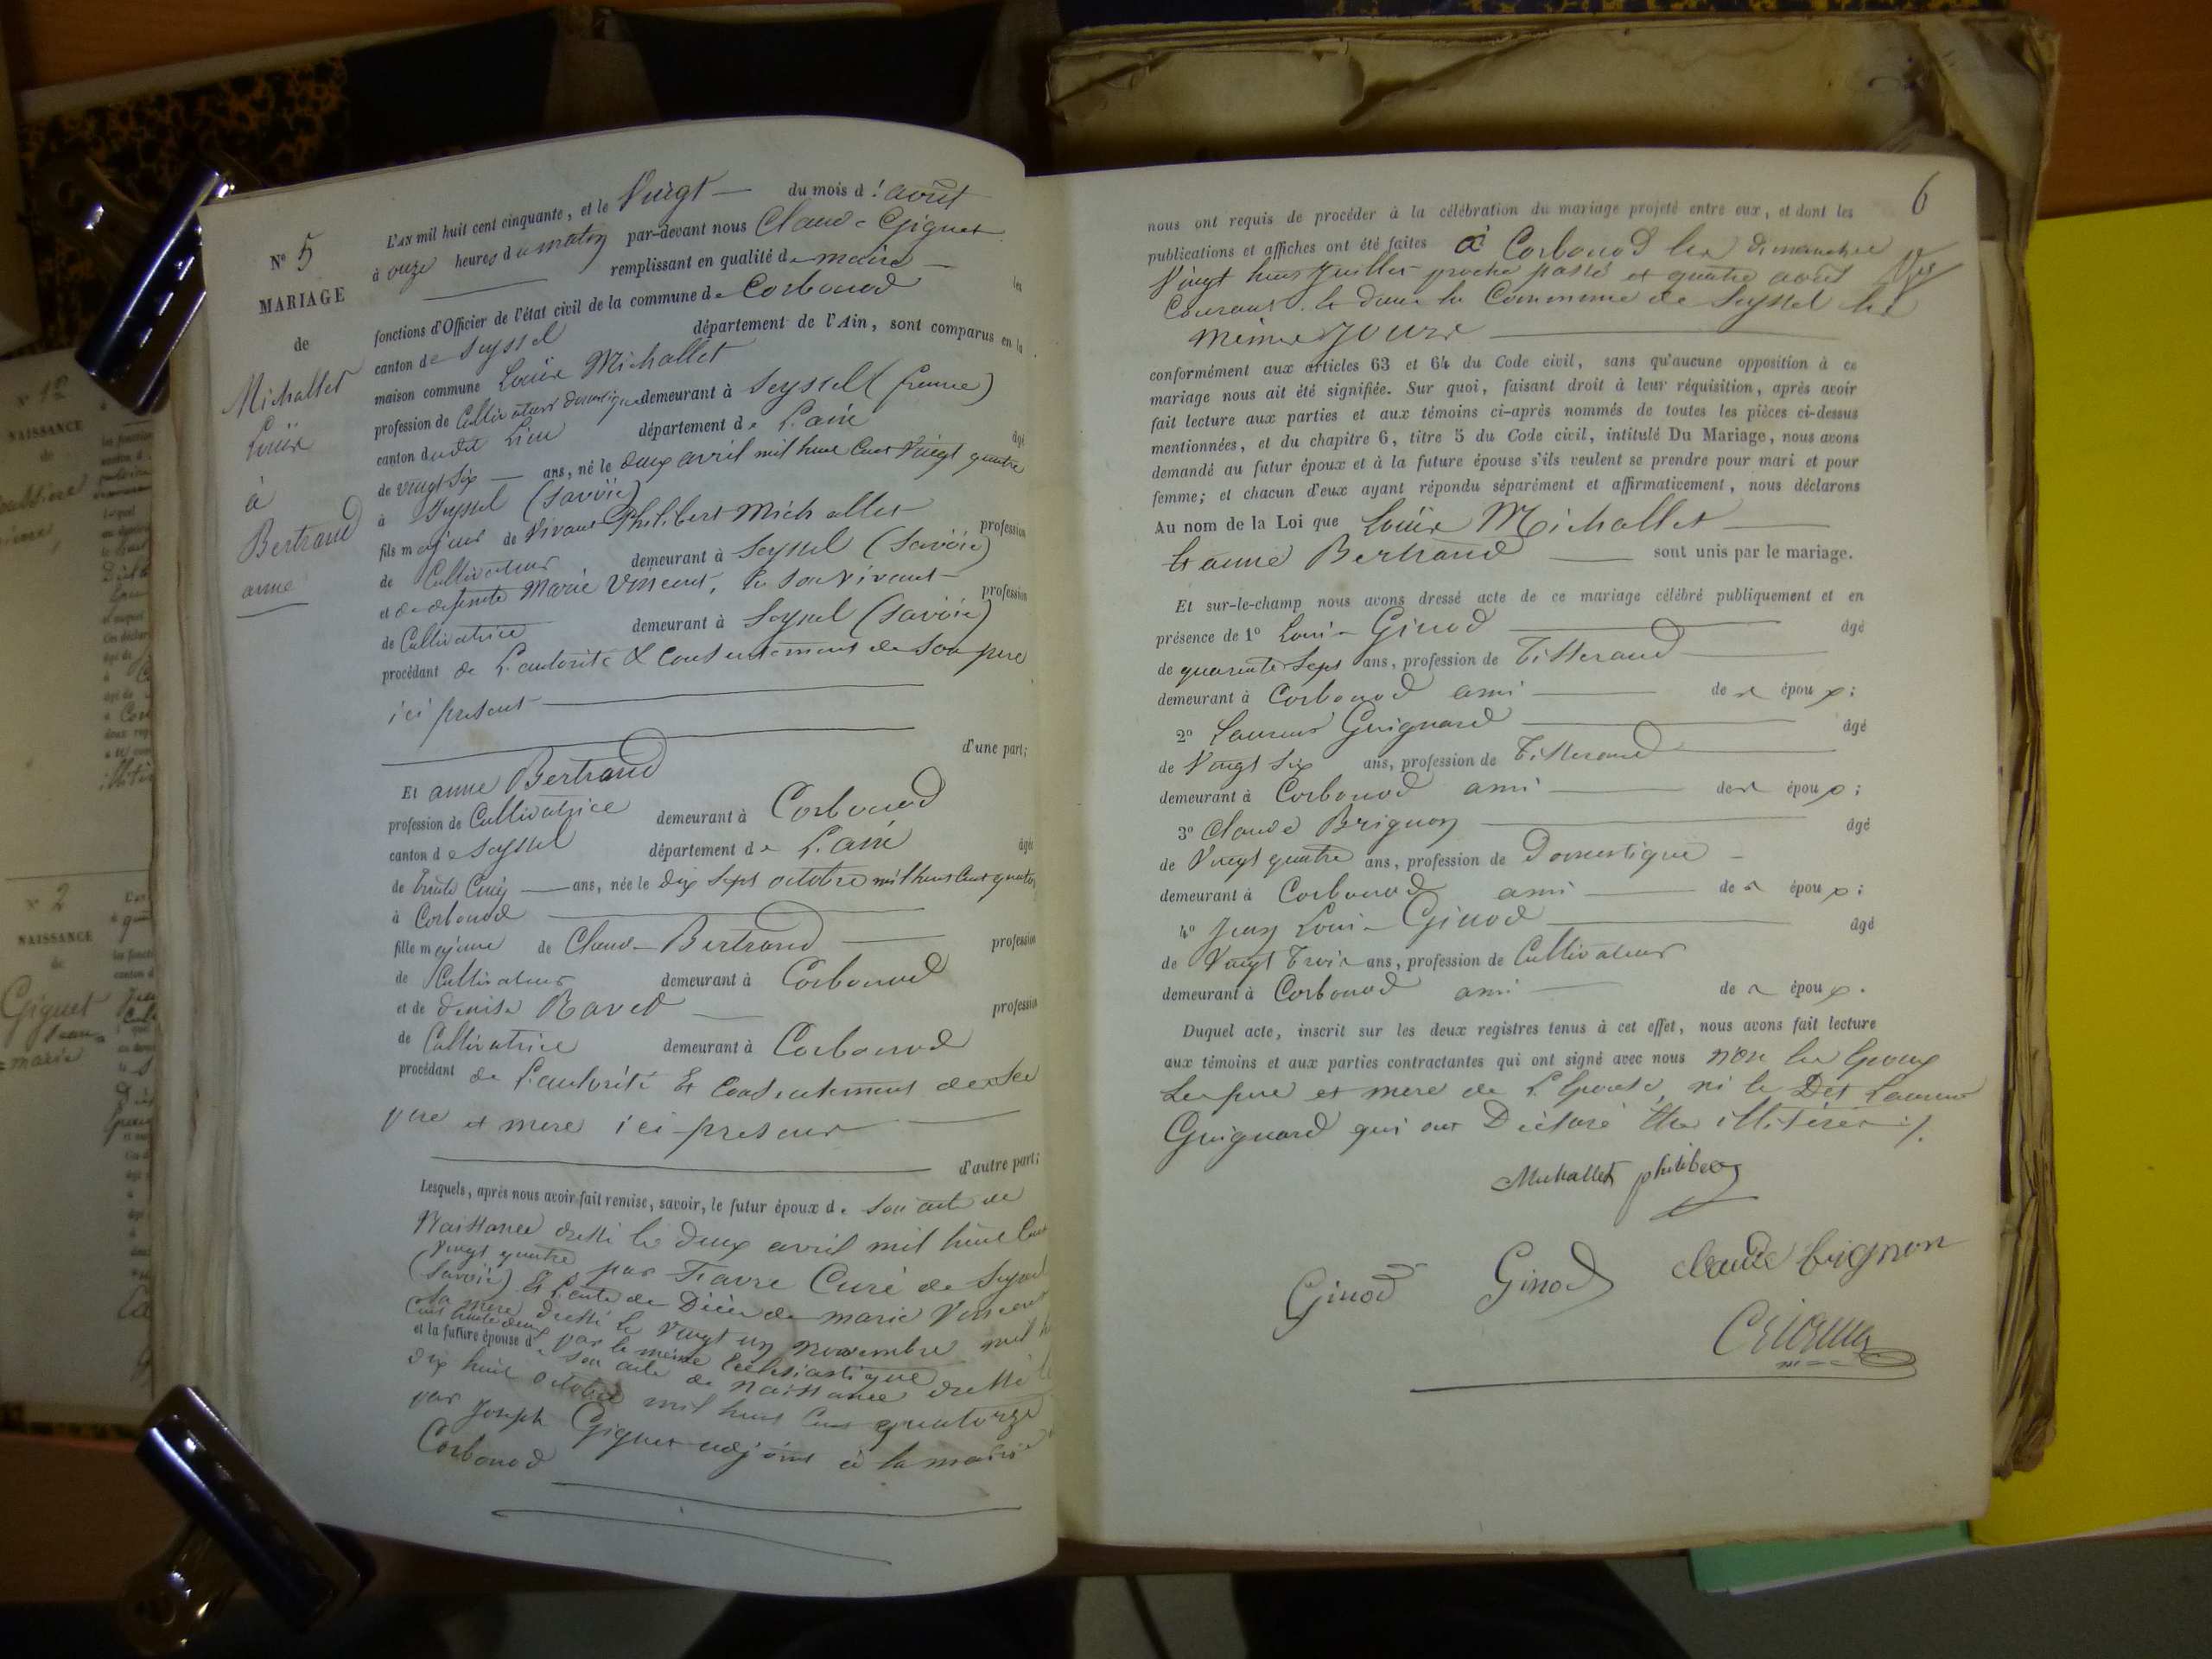 N° 5
MARIAGE
de
Michallet
Louis
à
Bertrand
anne
L'AN mil huit cent cinquante, et le Vingt du mois d'. avût
à onze heures du matin par-devant nous Claude Giguet
remplissant en qualité de maire les
fonctions d'Officier de l'état civil de la commune de Corbonod
canton de Seyssel département de l'Ain, sont comparus en la
maison commune Louis Michallet
profession de Cultivateur domestique demeurant à Seyssel (france)
canton dudit Lieu département de L'ain âgé
de vingt Six ans, né le deux avril mil huit Cent Vingt quatre
à Seyssel (Savoie)
fils majeur de Vivant Philibert Michallet profession
de Cultivateur demeurant à Seyssel (Savoie)
et de defunte Marie Vincent, En Son Vivant profession
de Cultivatrice demeurant à Seyssel (Savoie)
procédant de L'autorité & Consentement de Son pere
ici present
d'une part;
Et anne Bertrand
profession de Cultivatrice demeurant à Corbonod
canton de Seyssel département de L'ain âgée
de trente Cinq ans, née le dix Sept octobre mil huit Cent quatorz
à Corbonod
fille majeure de Claude Bertrand profession
de Cultivateur demeurant à Corbonod
et de denise Ravet profession
de Cultivatrice demeurant à Corbonod
procédant de L'autorité Et Consentement de Ses
pere et mere ici present
d'autre part;
Lesquels, après nous avoir fait remise, savoir, le futur époux de Son acte de
Naissance dressé le deux avril mil huit Cent
Vingt quatre par Favre Curé de Seyssel
(Savoie) Et L'acte de Décès de marie Vincent
Sa mere dressé le Vingt un novembre mil h
Cent trente deux par le même Ecclésiastique
et la future épouse de Son acte de naissance dressé le
dix huit octobre mil huit Cent quatorze
par Joseph Giguet adjoint à la mairie
Corbonod
6
nous ont requis de procéder à la célébration du mariage projeté entre eux, et dont les
publications et affiches ont été faites à Corbonod les dimanches
Vingt huit Juillet proche passé et quatre avût
Courant & dans la Commune de Seyssel les
mêmes jours
conformément aux articles 63 et 64 du Code civil, sans qu'aucune opposition à ce
mariage nous ait été signifiée. Sur quoi, faisant droit à leur réquisition, après avoir
fait lecture aux parties et aux témoins ci-après nommés de toutes les pièces ci-dessus
mentionnées, et du chapitre 6, titre 5 du Code civil, intitulé Du Mariage, nous avons
demandé au futur époux et à la future épouse s'ils veulent se prendre pour mari et pour
femme; et chacun d'eux ayant répondu séparément et affirmativement, nous déclarons
Au nom de la Loi que Louis Michallet
Et anne Bertrand sont unis par le mariage.
Et sur-le-champ nous avons dressé acte de ce mariage célébré publiquement et en
présence de 1° Louis Ginod âgé
de quarante Sept ans, profession de Tisserand
demeurant à Corbonod ami des époux;
2° Laurent Guignard âgé
de Vingt Six ans, profession de Tisserand
demeurant à Corbonod ami des époux;
3° Claude Brignon âgé
de Vingt quatre ans, profession de Domestique
demeurant à Corbonod ami des époux;
4° Jean Louis Ginod âgé
de Vingt Trois ans, profession de Cultivateur
demeurant à Corbonod ami des époux.
Duquel acte, inscrit sur les deux registres tenus à cet effet, nous avons fait lecture
aux témoins et aux parties contractantes qui ont signé avec nous non les Epoux
Les pere et mere de L'Epouse, ni le Dit Laurent
Guignard qui ont Déclaré être illitérés /.
Michallet philibert
Ginod Ginod claude brignon